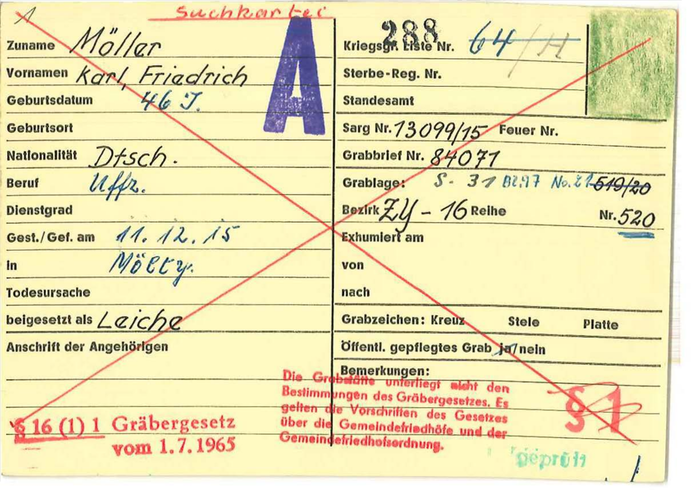 1
Suchkartei
Zuname Möller
Vornamen Karl, Friedrich
Geburtsdatum 46 J.
Geburtsort
Nationalität Dtsch.
Beruf Uffz.
Dienstgrad
Gest./Gef. am 11.12.15
In Mölty.
Todesursache
beigesetzt als Leiche
Anschrift der Angehörigen
§ 16 (1) 1 Gräbergesetz
vom 1.7.1965
A
288
Kriegsgr. Liste Nr. 64/H
Sterbe-Reg. Nr.
Standesamt
Sarg Nr. 13099/15 Feuer Nr.
Grabbrief Nr. 84071
Grablage: S-31 Bl.97 No.21 519/20
Bezirk ZY-16 Reihe Nr. 520
Exhumiert am
von
nach
Grabzeichen: Kreuz Stele Platte
Öffentl. gepflegtes Grab ja/nein
Bemerkungen:
Die Grabstätte unterliegt nicht den
Bestimmungen des Gräbergesetzes. Es
gelten die Vorschriften des Gesetzes
über die Gemeindefriedhöfe und der
Gemeindefriedhofsordnung.
§ 1
geprüft